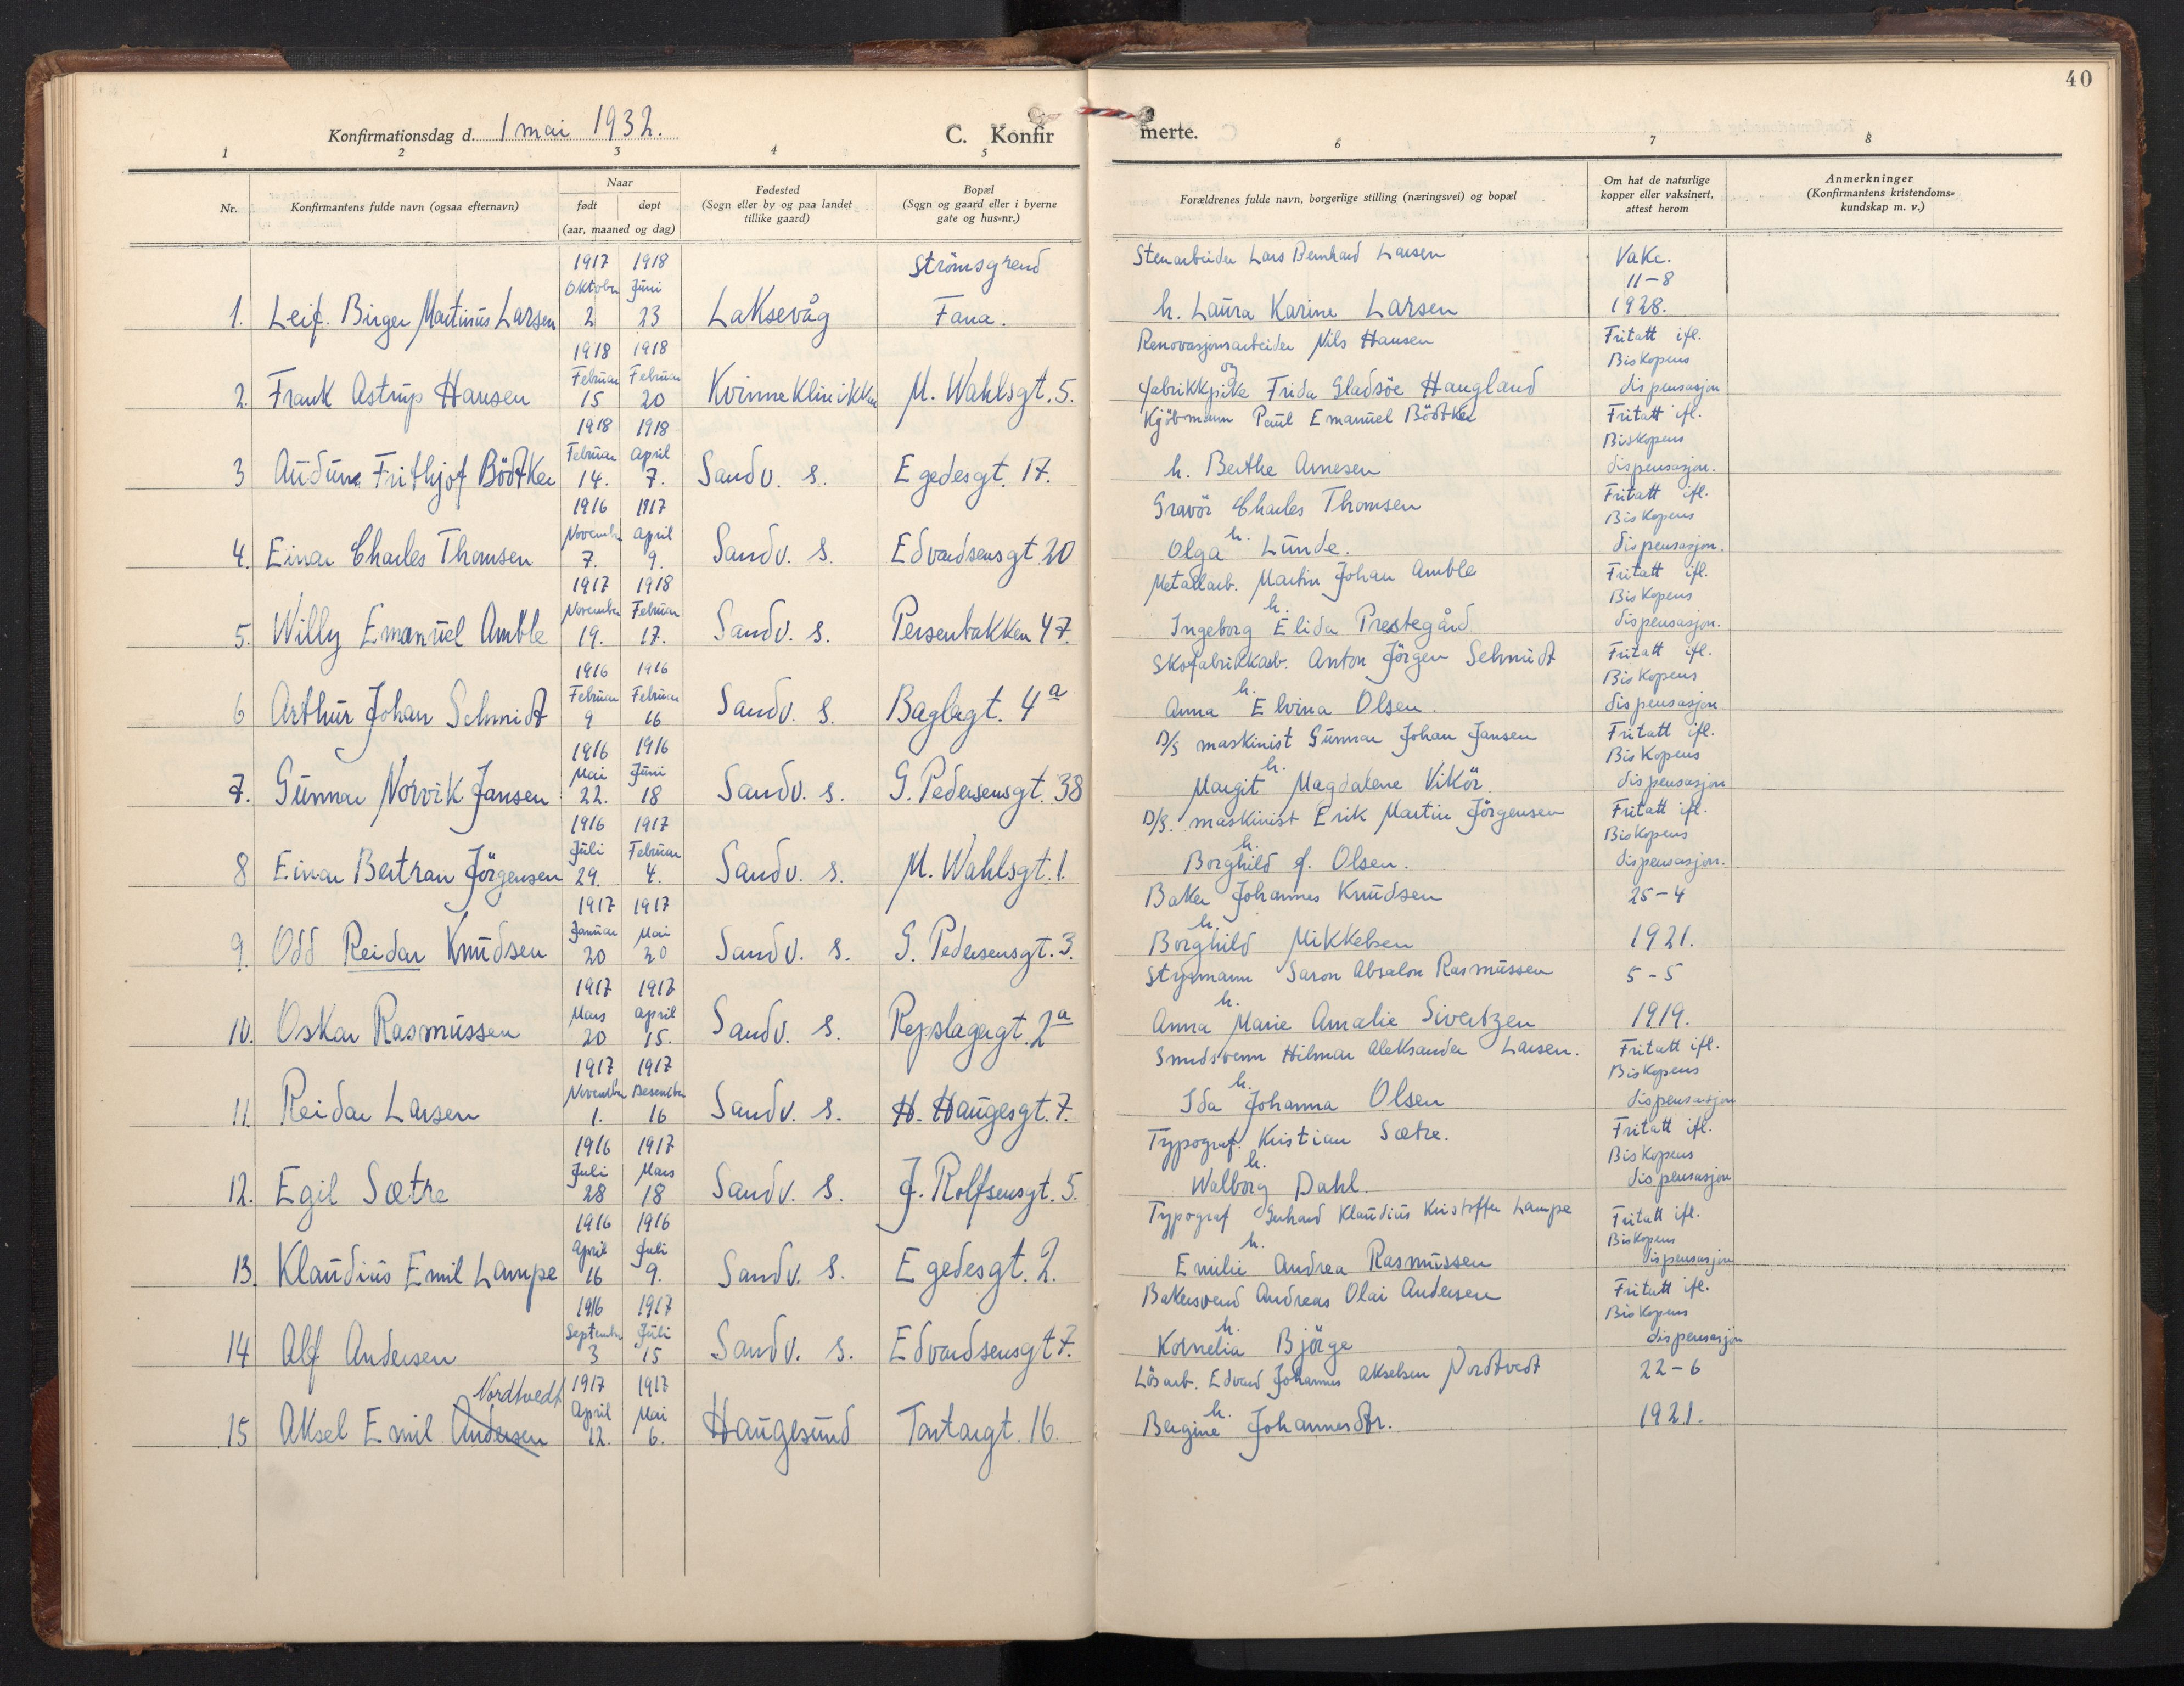 40
Konfirmationsdag d. 1 mai 1932.
C. Konfirmerte.
1 2 3 4 5 6 7 8
Nr.
Konfirmantens fulde navn (ogsaa efternavn)
Naar
født døpt
(aar, maaned og dag)
Fødested
(Sogn eller by og paa landet
tillike gaard)
Bopæl
(Sogn og gaard eller i byerne
gate og hus-nr.)
Forældrenes fulde navn, borgerlige stilling (næringsvei) og bopæl
Om hat de naturlige
kopper eller vaksinert,
attest herom
Anmerkninger
(Konfirmantens kristendoms-
kundskap m. v.)
1917 1918 Strömsgrend Stenarbeider Lars Bernhard Larsen Vakc.
Oktober Juni 11-8
1. Leif. Birger Martinus Larsen 2 23 Laksevåg Fana. h. Laura Karine Larsen 1928.
1918 1918 Renovasjonsarbeider Nils Hansen Fritatt ifl.
Februar Februar og Biskopens
2. Frank Astrup Hansen 15 20 Kvinneklinikken M. Wahlsgt. 5. fabrikkpike Frida Gladsöe Haugland dispensasjon
1918 1918 Kjöbmann Paul Emanuel Bödtker Fritatt ifl.
Februar April Biskopens
3 Audun Frithjof Bödtker 14. 7. Sandv. s. Egedesgt. 17. h. Berthe Arnesen dispensasjon.
1916 1917 Gravör Charles Thomsen Fritatt ifl.
November April h. Biskopens
4. Einar Charles Thomsen 7. 9. Sandv. s. Edvardsensgt 20 Olga Lunde. dispensasjon.
1917 1918 Metallarb. Martin Johan Amble Fritatt ifl.
November Februar h. Biskopens
5. Willy Emanuel Amble 19. 17. Sandv. s. Persenbakken 47. Ingeborg Elida Prestegård dispensasjon.
1916 1916 Skofabrikkarb. Anton Jörgen Schmidt Fritatt ifl.
Februar Februar h. Biskopens
6 Arthur Johan Schmidt 9 16 Sandv. s. Baglergt. 4a Anna Elvina Olsen. dispensasjon
1916 1916 D/S maskinist Gunnar Johan Jansen Fritatt ifl.
Mai Juni h. Biskopens
7. Gunnar Norvik Jansen 22. 18 Sandv. s. G. Pedersensgt. 38 Margit Magdalene Vikör. dispensasjon
1916 1917 D/S. maskinist Erik Martin Jörgensen Fritatt ifl.
Juli Februar h. Biskopens
8 Einar Bertran Jörgensen 29. 4. Sandv. s. M. Wahlsgt. 1. Borghild f. Olsen. dispensasjon.
1917 1917 Baker Johannes Knudsen 25-4
Januar Mai h.
9. Odd Reidar Knudsen 20 20 Sandv. s. G. Pedersensgt. 3. Borghild Mikkelsen 1921.
1917 1917 Styrmann Saron Absalon Rasmussen 5-5
Mars April h.
10. Oskar Rasmussen 20 15. Sandv. s. Repslagergt. 2a Anna Marie Amalie Sivertzen 1919.
1917 1917 Smedsvenn Hilmar Aleksander Larsen. Fritatt ifl.
November Desember h. Biskopens
11. Reidar Larsen 1. 16 Sandv. s. H. Haugesgt. 7. Ida Johanna Olsen dispensasjon
1916 1917 Typograf. Kristian Sætre. Fritatt ifl.
Juli Mars h. Biskopens
12. Egil Sætre 28 18 Sandv. s. J. Rolfsensgt. 5. Walborg Dahl. dispensasjon
1916 1916 Typograf Gerhard Klaudius Kristoffer Lampe Fritatt ifl.
April Juli h. Biskopens
13. Klaudius Emil Lampe 16 9. Sandv. s. Egedesgt. 2. Emilie Andrea Rasmussen dispensasjon
1916 1917 Bakersvend Andreas Olai Andersen Fritatt ifl.
September Juli h. Biskopens
14 Alf Andersen 3 15 Sandv. s. Edvardsensgt 7. Kornelia Björge dispensasjon
Nordtvedt 1917 1917 Lösarb. Edvard Johannes Akselsen Nordtvedt 22-6
April Mai h.
15 Aksel Emil Andersen 12. 6. Haugesund Tartargt. 16. Bergine Johannesdtr. 1921.